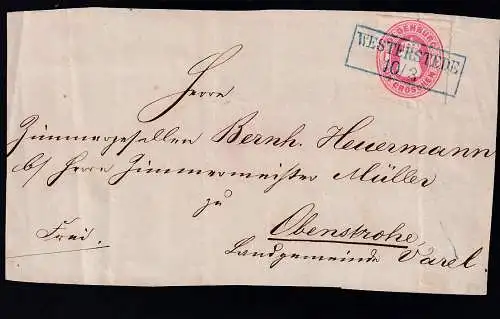 GENBURG
EIN GROSCHEN
WESTERSTEDE
10/3
Herrn
Zimmergesellen Bernh. Heuermann
b/ Herrn Zimmermeister Müller
zu
Frei.
Obenstrohe,
Landgemeinde Varel.